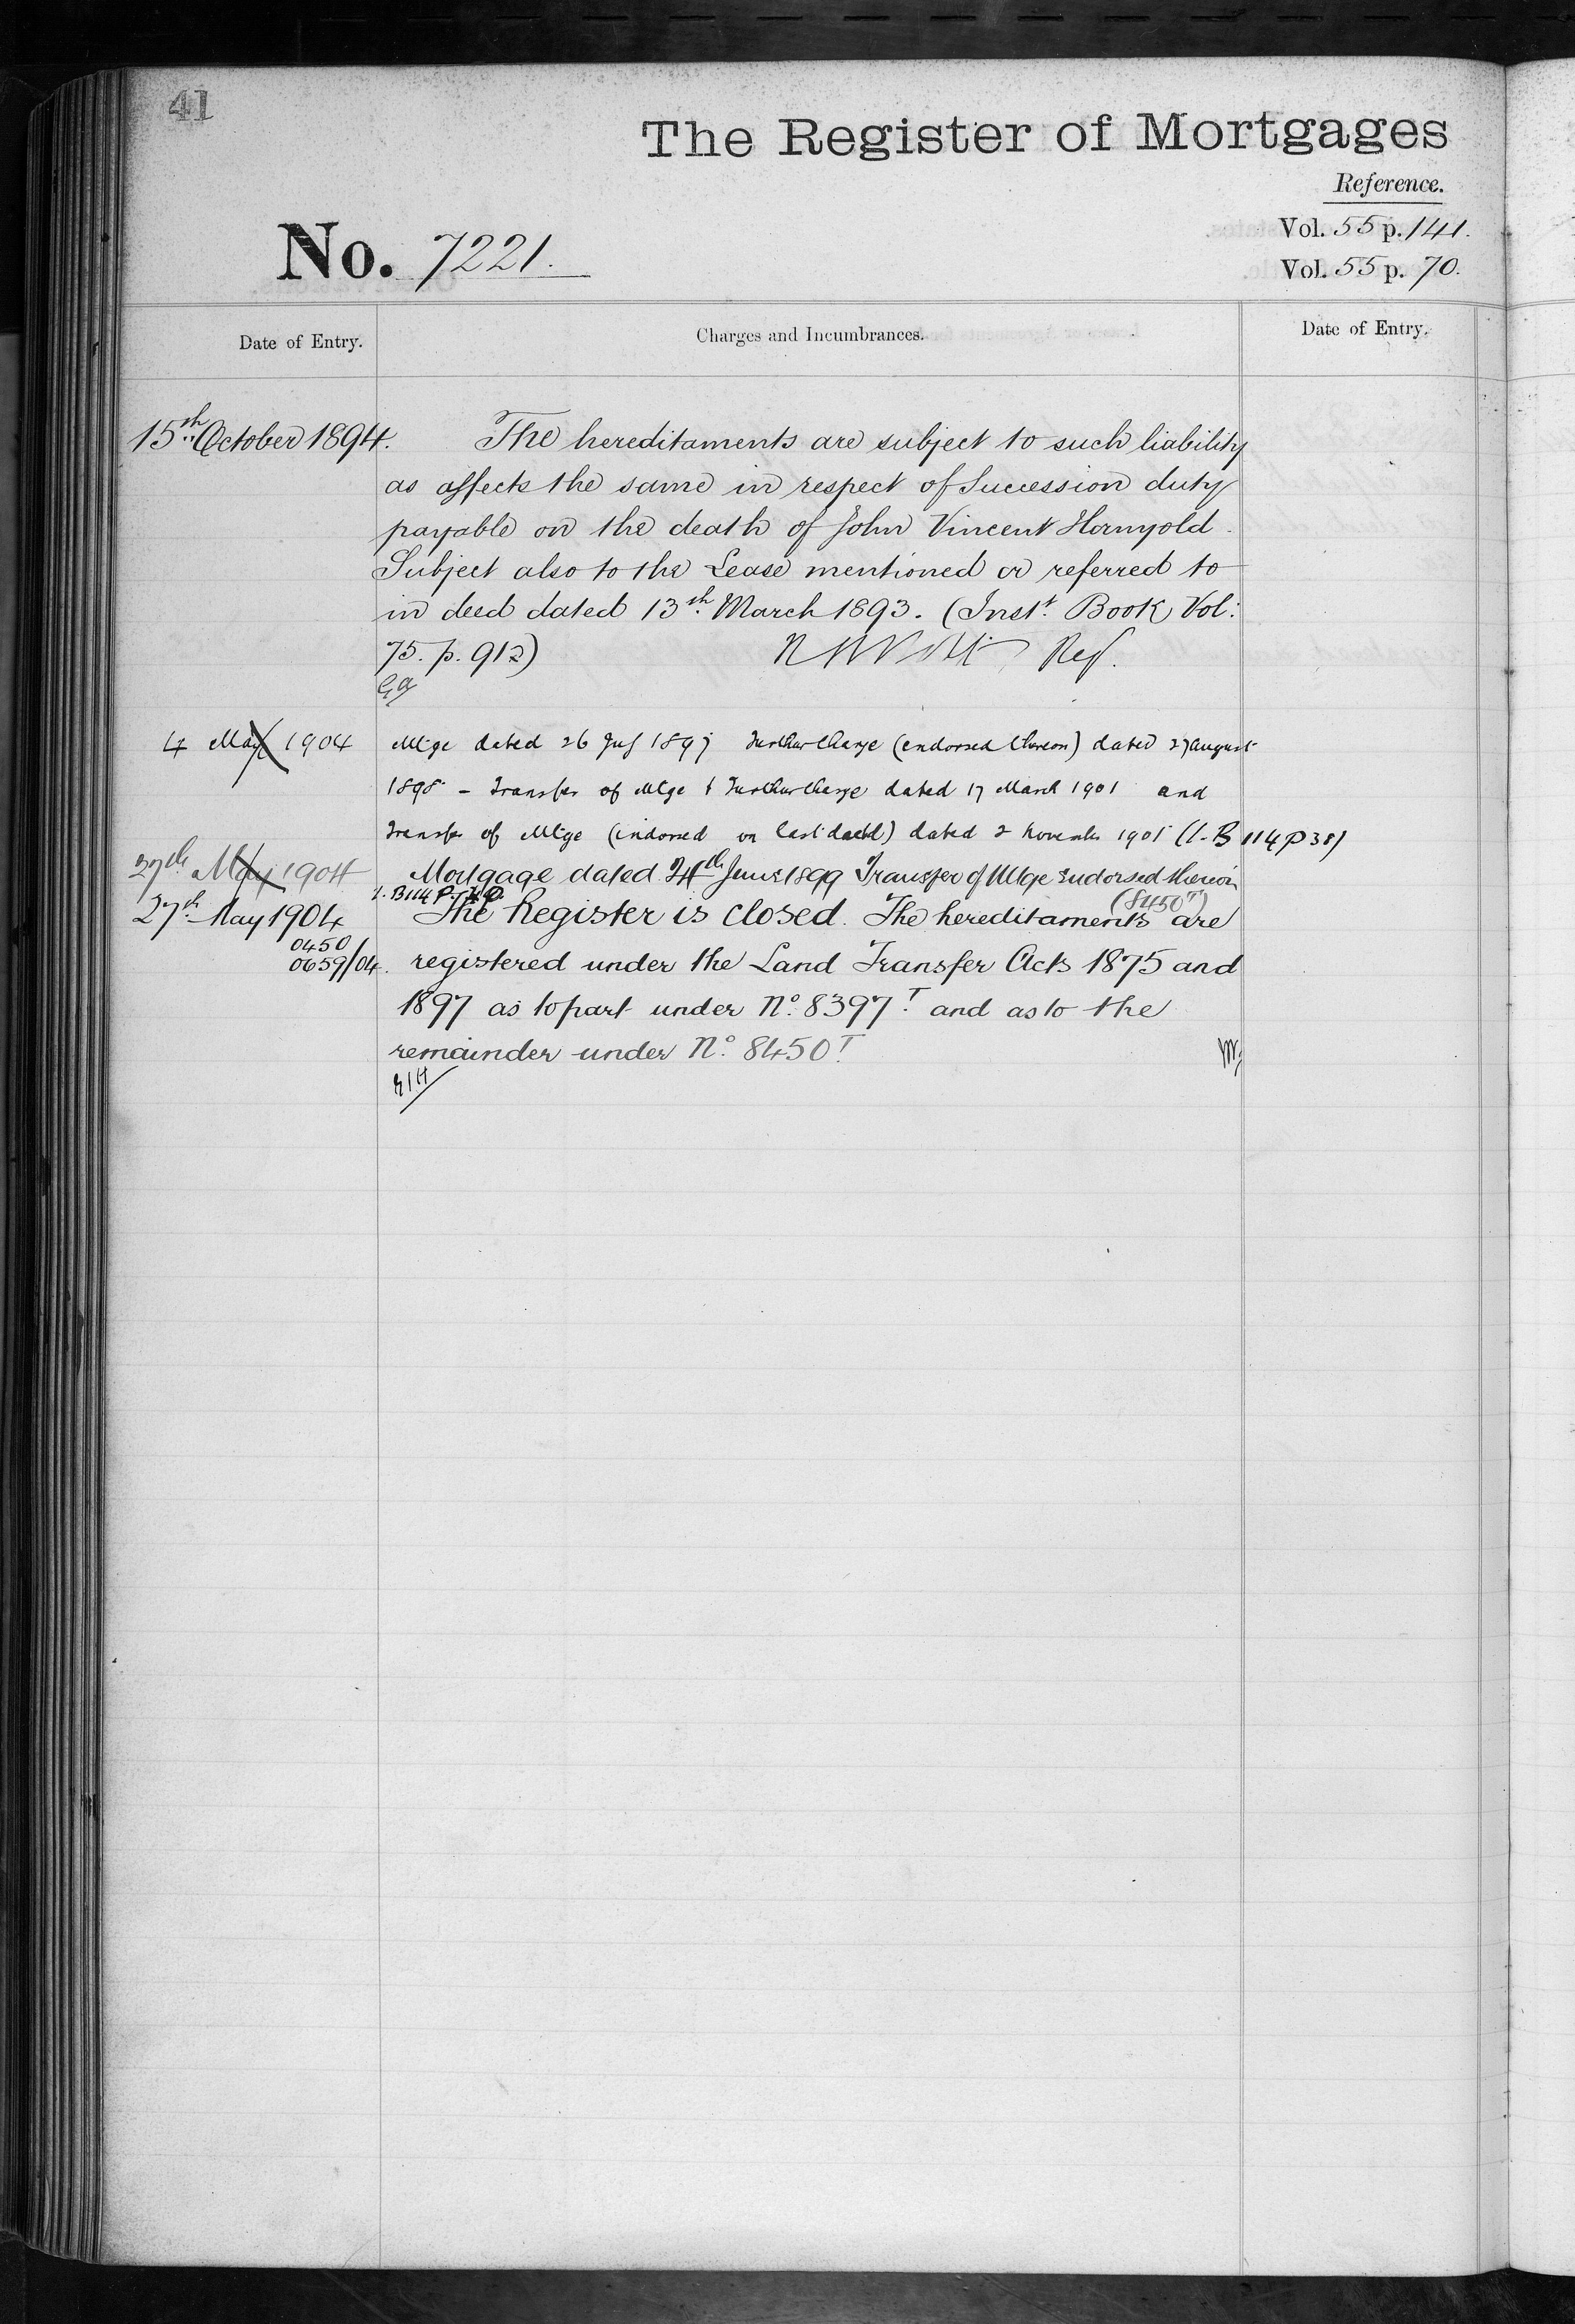 41
The Register of Mortgages
Reference.
Vol. 55 p. 141.
No. 7221.
Vol. 55 p. 70.
Date of Entry.
Charges and Incumbrances.
Date of Entry.
15th October 1894.
The hereditaments are subject to such liability
as affects the same in respect of Succession duty
payable on the death of John Vincent Hornyold
Subject also to the Lease mentioned or referred to
in deed dated 13th March 1893. (Inst. Book Vol:
75. p. 912)
Reg.
4 May 1904
Mtge dated 26 July 1897 Further Charge (endorsed thereon) dated 27 august
1898 - Transfer of Mtge & Further Charge dated 17 March 1901 and
Transfer of Mtge (indorsed on last dated) dated 2 November 1901 (I-B 114 P 38)
27th May 1904
Mortgage dated 24th June 1899 Transfer of Mtge Endorsed thereon
I. B 114 P.
(8450T)
27th May 1904
The Register is closed. The hereditaments are
0450
0659/04.
registered under the Land Transfer Acts 1875 and
1897 as to part under No. 8397T and as to the
remainder under No. 8450T